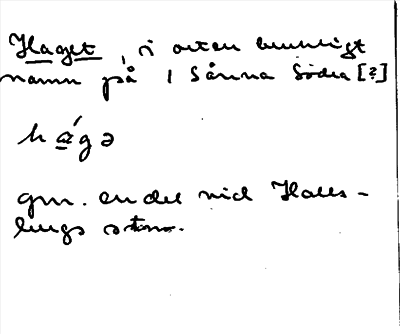 Haget, i orten brukligt
namn på 1 Sånna Södra [?]
hágə
gm. en del vid Halls-
bergs stn.